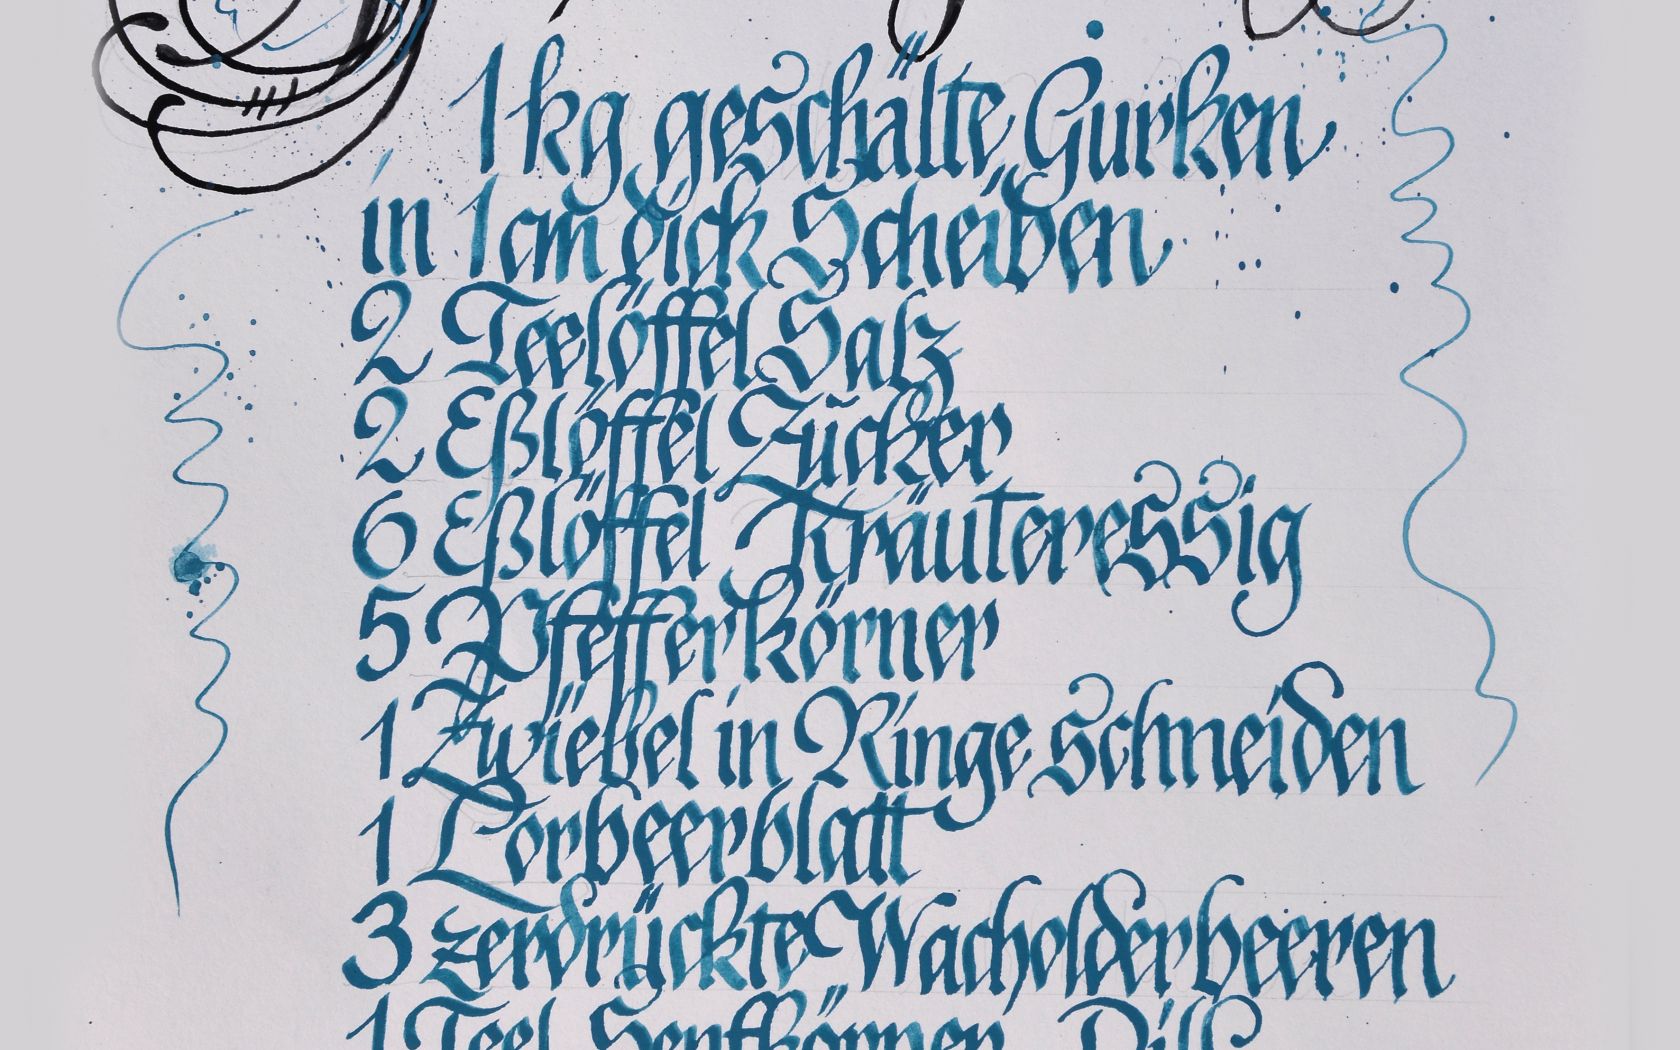 1 kg geschälte Gurken
in 1 cm dick Scheiben
2 Teelöffel Salz
2 Eßlöffel Zucker
6 Eßlöffel Kräuteressig
5 Pfefferkörner
1 Zwiebel in Ringe schneiden
1 Lorbeerblatt
3 zerdrückte Wacholderbeeren
1 Teel. Senfkörner Dill